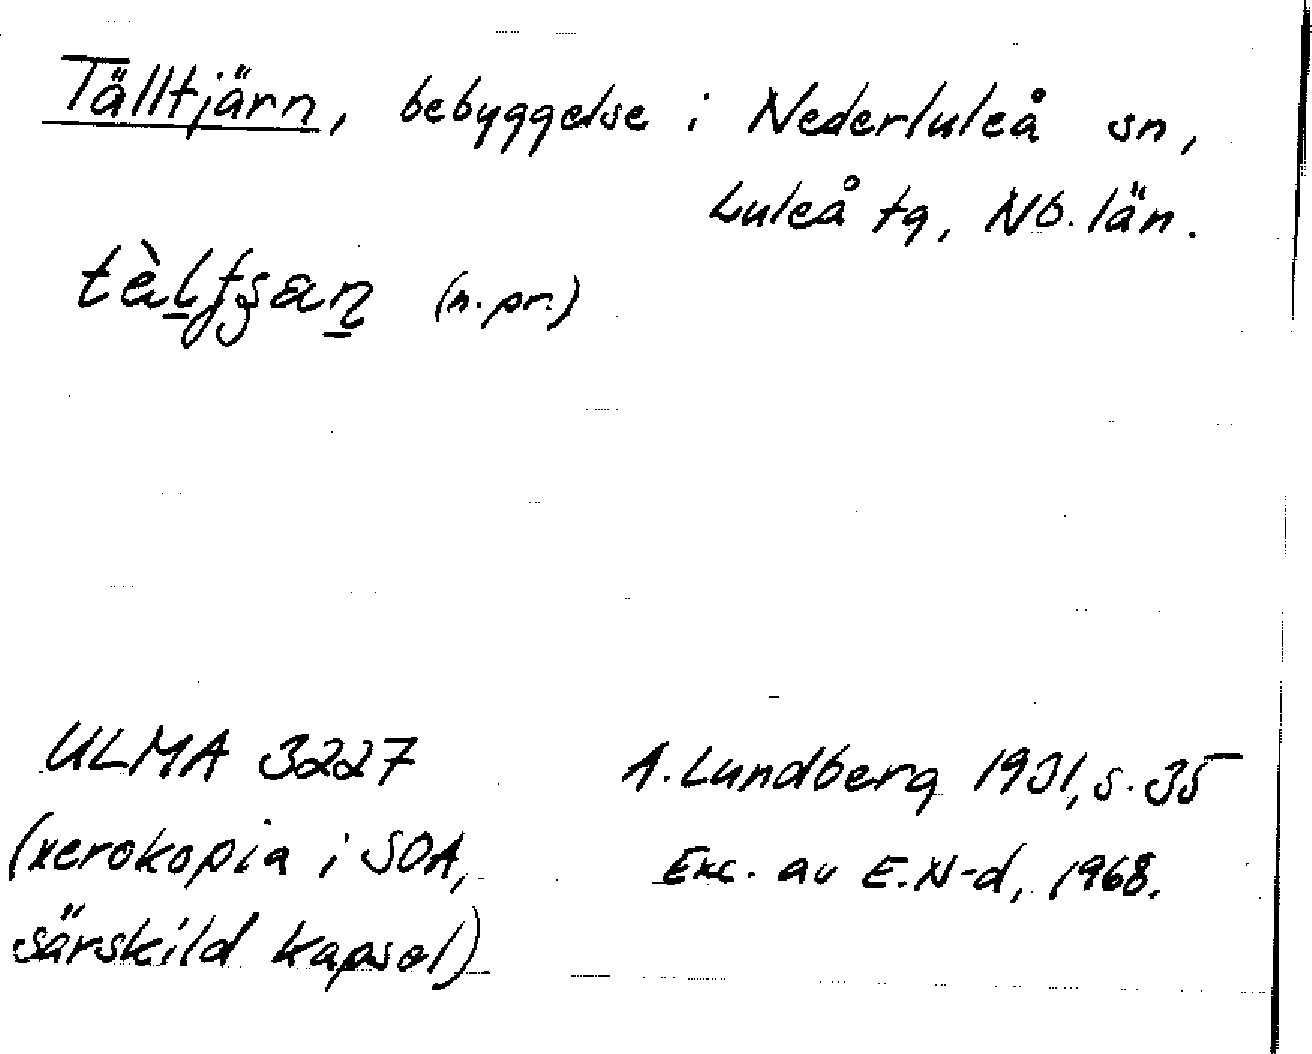 Tälltjärn, bebyggelse i Nederluleå sn,
Luleå tg, Nb. län.
(n. pr.)
ULMA 3227
A. Lundberg 1931, s. 35
(xerokopia i SOA,
Exc. av E. N-d, 1968.
särskild kapsel)